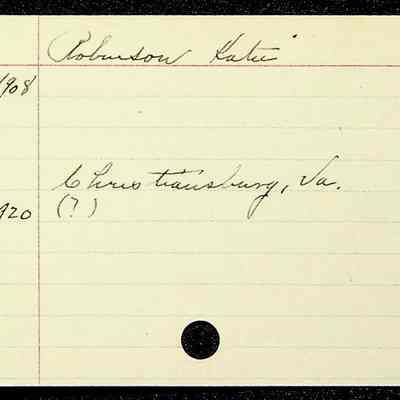 Robinson Katie
1908
Christiansburg, Va.
1920 (?)